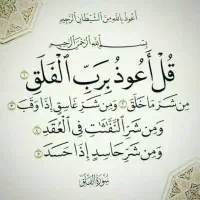 أعوذ بالله من الشيطان الرجيم
بسم الله الرحمن الرحيم
قُلْ أَعُوذُ بِرَبِّ الْفَلَقِ ١
مِن شَرِّ مَا خَلَقَ ٢ وَمِن شَرِّ غَاسِقٍ إِذَا وَقَبَ ٣
وَمِن شَرِّ النَّفَّاثَاتِ فِي الْعُقَدِ ٤
وَمِن شَرِّ حَاسِدٍ إِذَا حَسَدَ ٥
سورة الفلق